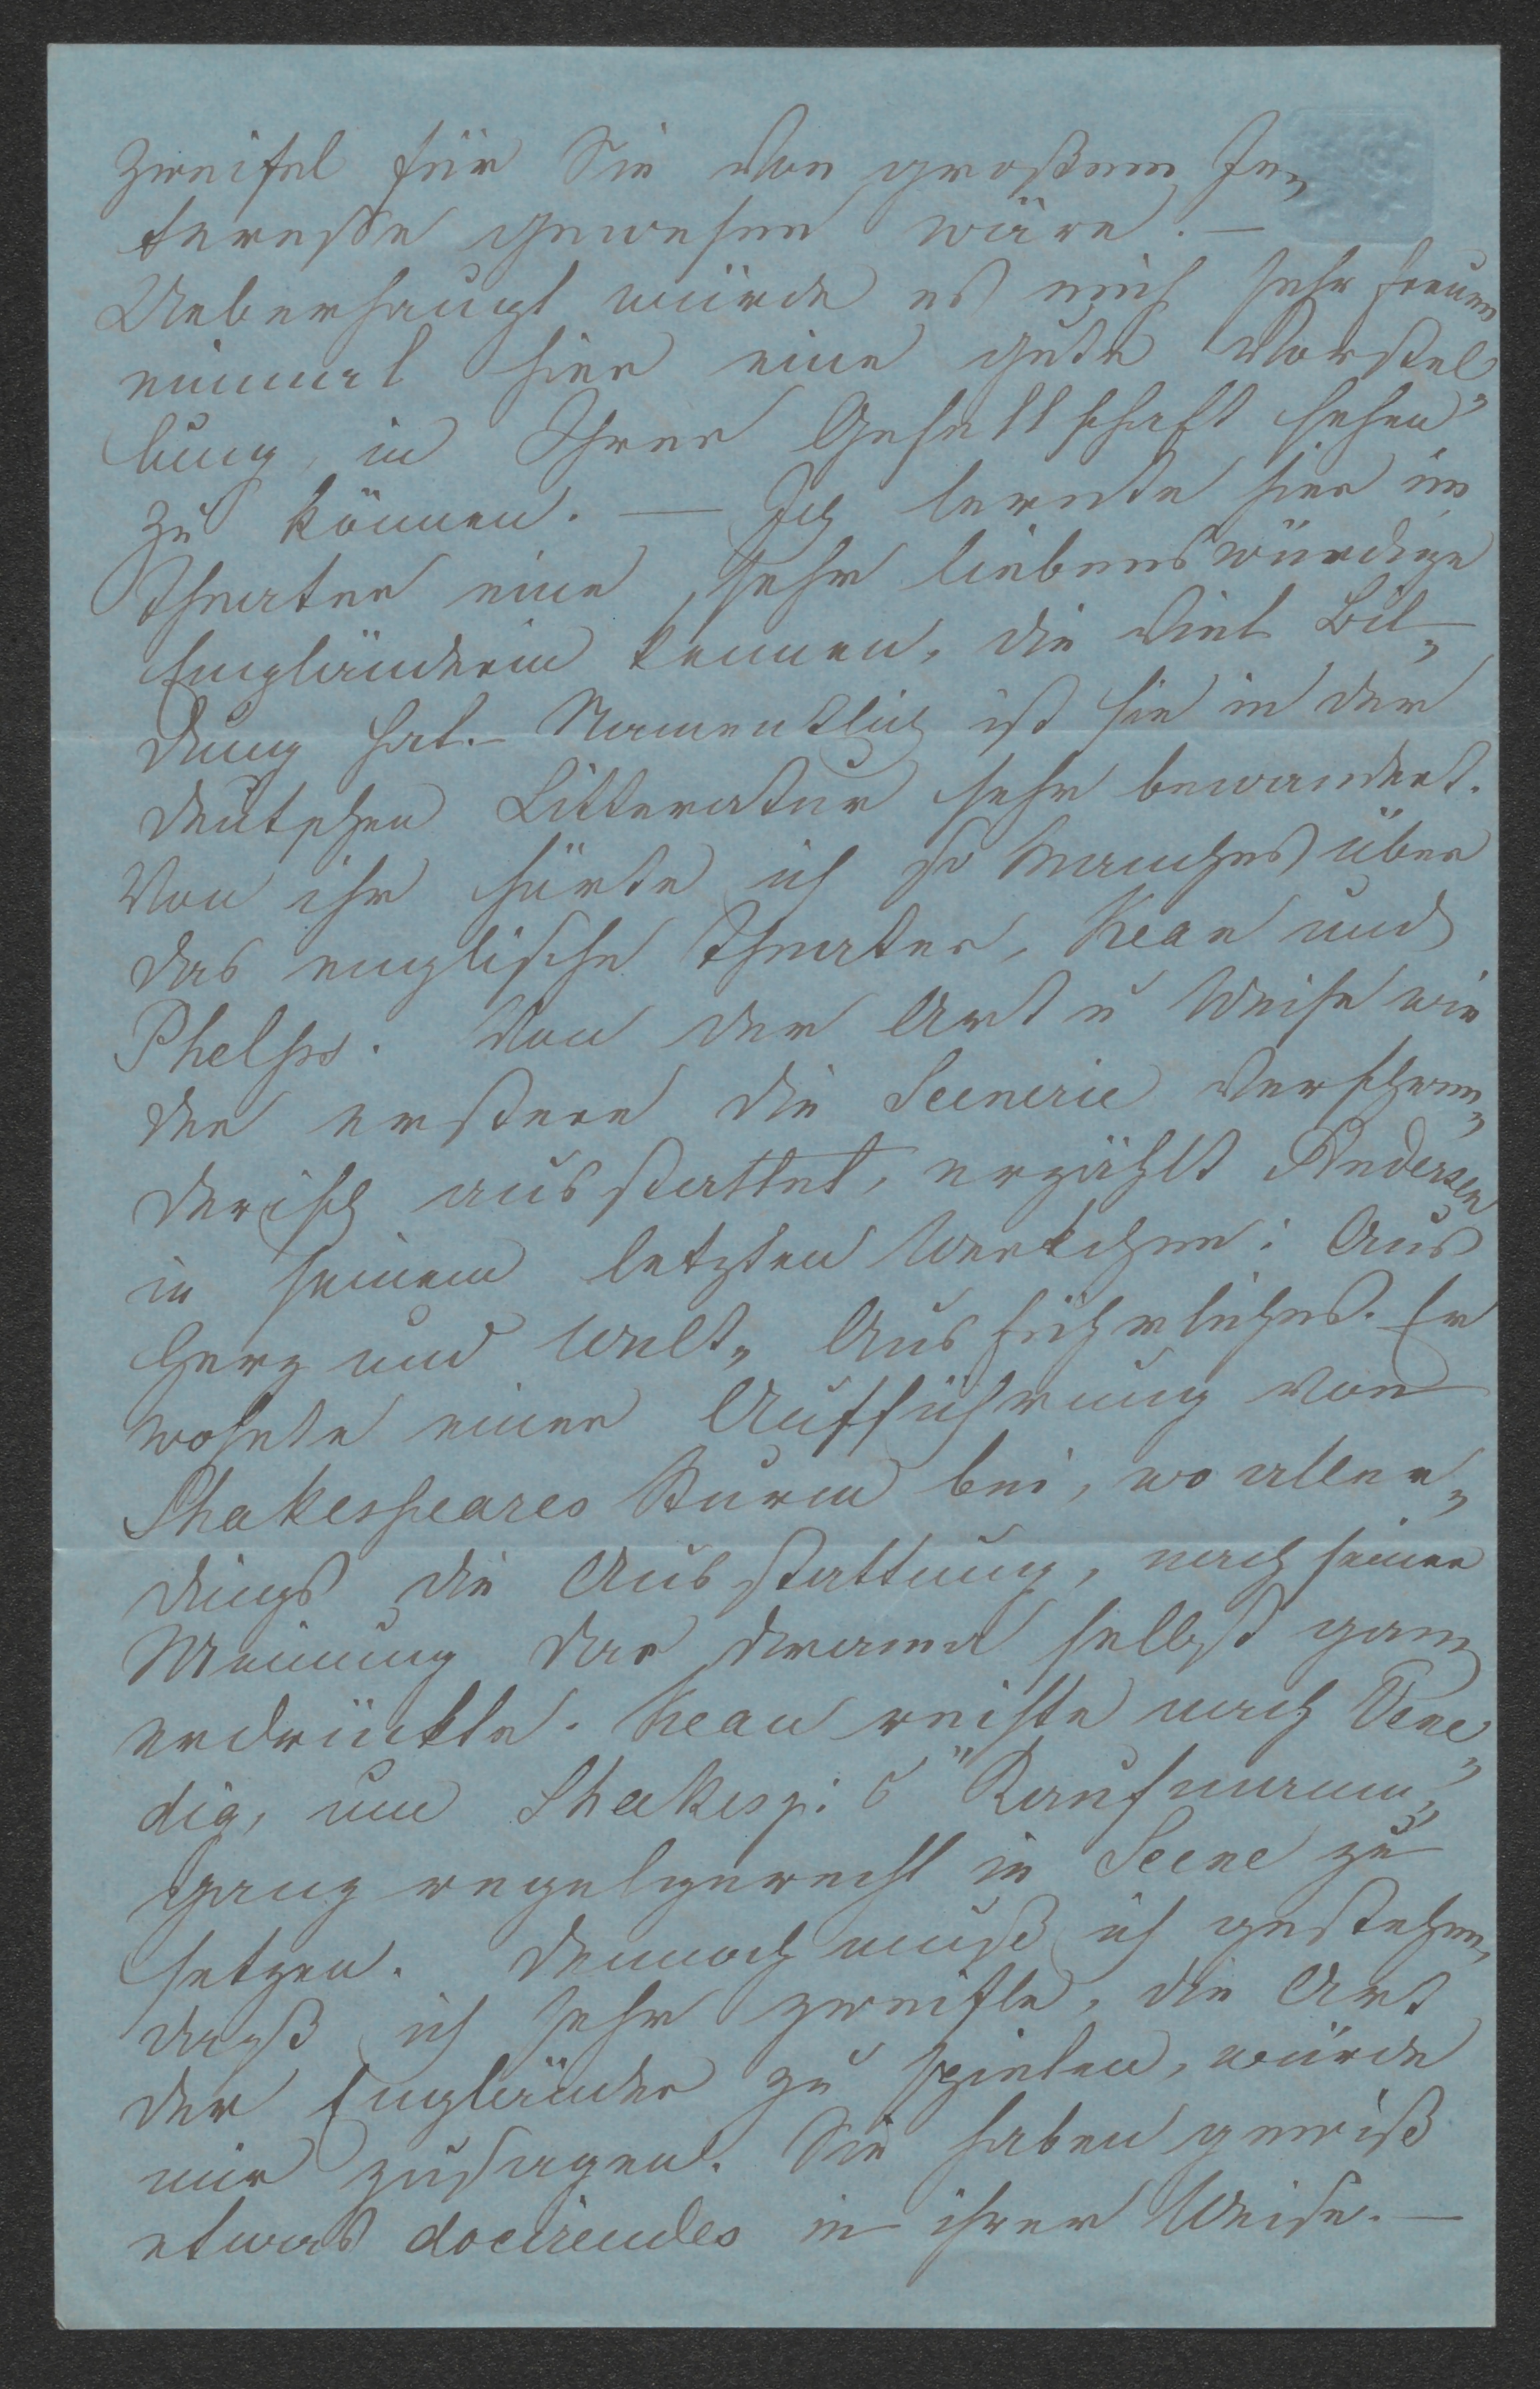 Zweifel für Sie von großem In„
teresse gewesen wäre. —
Ueberhaupt würde es mich sehr freuen
einmal hier eine gute Vorstel„
lung, in Ihrer Gesellschaft sehen
zu können. — Ich lernte hier im
Theater eine sehr liebenswürdige
Engländerin kennen, die viel Bil„
dung hat. – Namentlich ist sie in der
deutschen Litteratur sehr bewandert.
Von ihr hörte ich so Manches über
das englische Theater, Kean und
Phelps. Von der Art u Weise wie
der erstere die Scenerie verschwen„
derisch ausstattet, erzählt Andersen
in seinem letzten Werkchen: Aus
Herz und Welt„ Ausführliches. Er
wohnte einer Aufführung von
Shakespeares Sturm bei, wo aller„
dings die Ausstattung, nach seiner
Meinung das Drama selbst ganz
erdrückte. Kean reiste nach Vene„
dig, um Shakesp: s "Kaufmann„
ganz regelgerecht in Scene zu
setzen. Dennoch muß ich gestehen,
daß ich sehr zweifle, die Art
der Engländer zu spielen, würde
mir zusagen. Sie haben gewiß
etwas docirendes in ihrer Weise. —